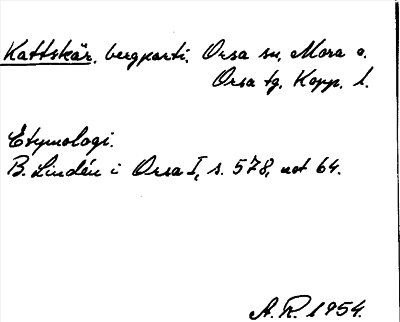 Kattskär, bergparti. Orsa sn, Mora o.
Orsa tg. Kopp. l.
Etymologi.
B. Lindén i Orsa I, s. 578, not 64.
A.R. 1954.